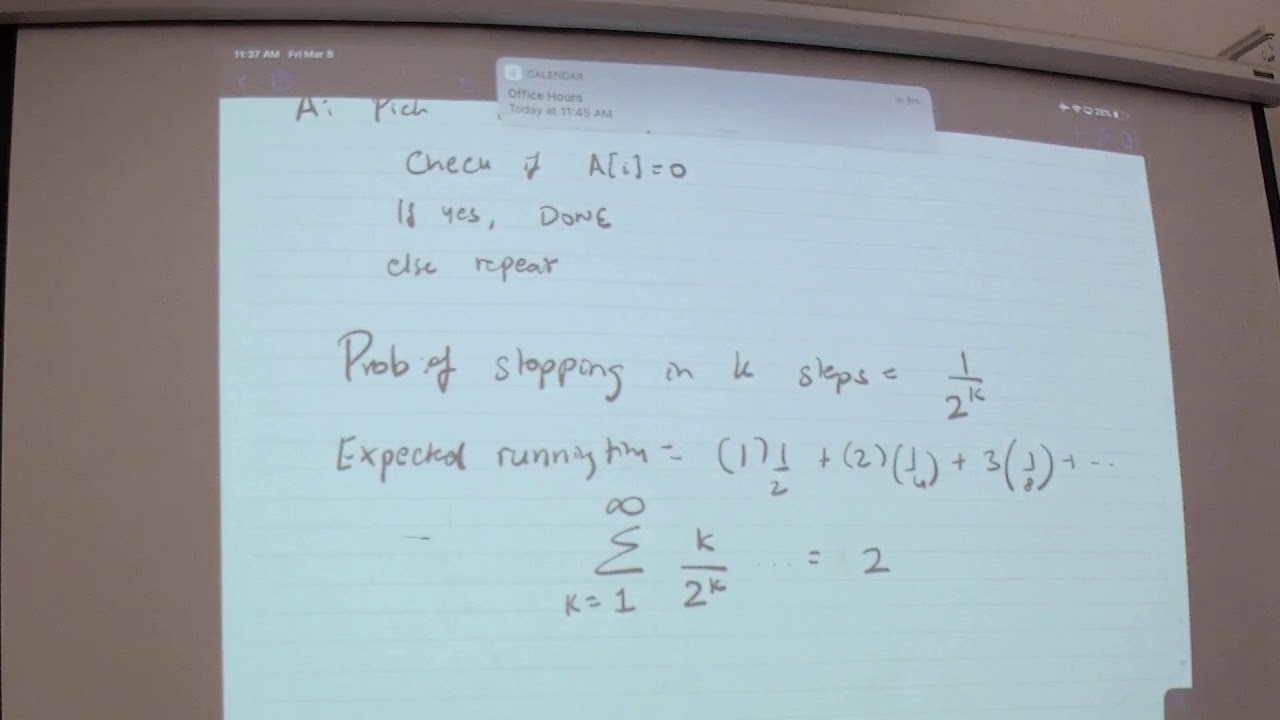 11:37 AM Fri Mar 8
CALENDAR
Office Hours
Today at 11:45 AM
in 8m
28%
A: Pick
Check if A[i]=0
If yes, DONE
else repeat
Prob of stopping in k steps = 1/2^k
Expected running tim = (1)1/2 + (2)(1/4) + 3(1/8) + ...
∞
∑ k/2^k ... = 2
k=1